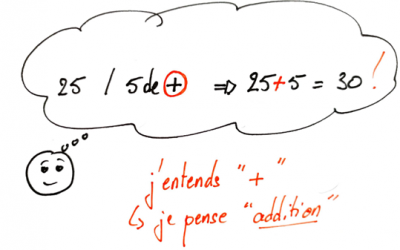 25 / 5 de + ⇒ 25+5 = 30 !
j'entends "+"
↳ je pense "addition"